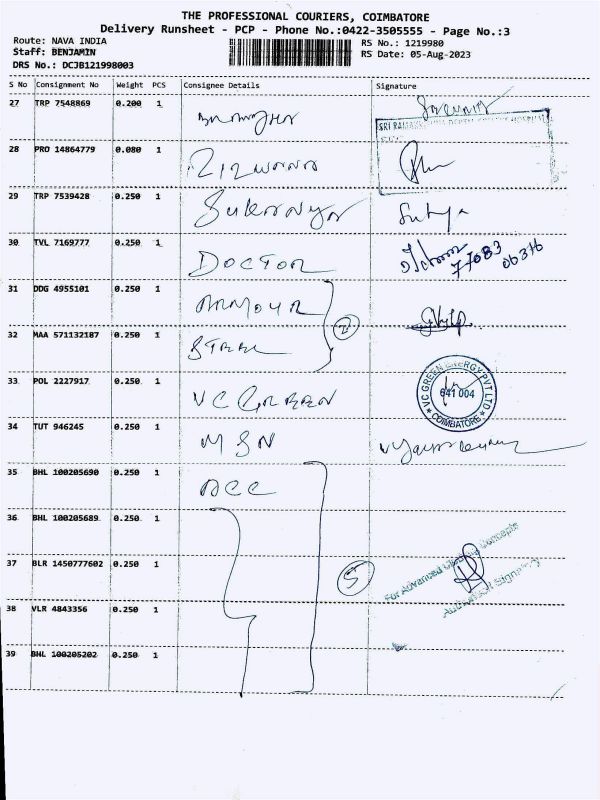 THE PROFESSIONAL COURIERS, COIMBATORE
Delivery Runsheet - PCP - Phone No.:0422-3505555 - Page No.:3
Route: NAVA INDIA RS No.: 1219980
Staff: BENJAMIN RS Date: 05-Aug-2023
DRS No.: DCJB121998003
S No Consignment No Weight PCS Consignee Details Signature
27 TRP 7548869 0.200 1
28 PRO 14864779 0.080 1 RIZWANA
29 TRP 7539428 0.250 1 Sukanya
30 TVL 7169777 0.250 1 DOCTOR 77083 06376
31 DDG 4955101 0.250 1 ARMOUR
32 MAA 571132187 0.250 1 STEEL 2
33 POL 2227917 0.250 1 VC GREEN VC GREEN ENERGY PVT LTD 641 004 COIMBATORE
34 TUT 946245 0.250 1 MSN
35 BHL 100205690 0.250 1 ACC
36 BHL 100205689 0.250 1
37 BLR 1450777602 0.250 1 5 For Advanced Concepts
Authorised Signatory
38 VLR 4843356 0.250 1
39 BHL 100205202 0.250 1